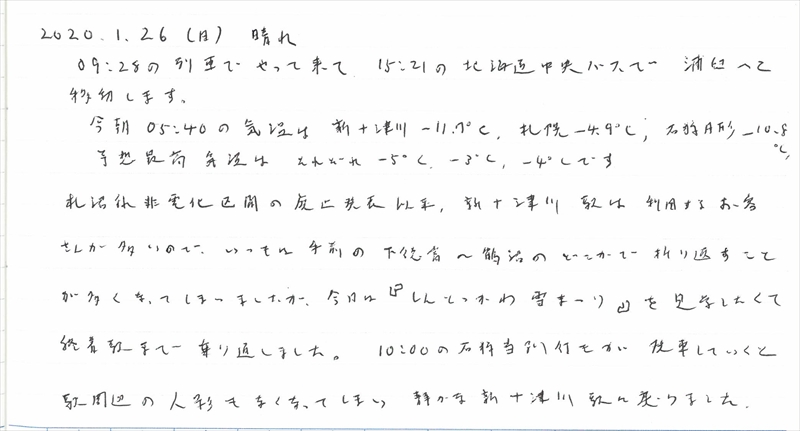 2020.1.26（日） 晴れ
09:28の列車でやって来て 15:21の北海道中央バスで 浦臼へと
移動します。
今朝 05:40の気温は 新十津川 -11.7℃, 札幌 -4.9℃, 石狩月形 -10.8℃,
予想最高気温は それぞれ -5℃, -3℃, -4℃です
札沼線非電化区間の廃止発表以来, 新十津川駅は利用するお客
さんが多いので、いつもは手前の下徳富～鶴沼のどこかで折り返すこと
が多くなってしまいましたが、今日は『しんとつかわ雪まつり』を見学したくて
終着駅まで乗り通しました。 10:00の石狩当別行きが発車していくと
駅周辺の人影もなくなってしまい 静かな新十津川駅に戻りました.